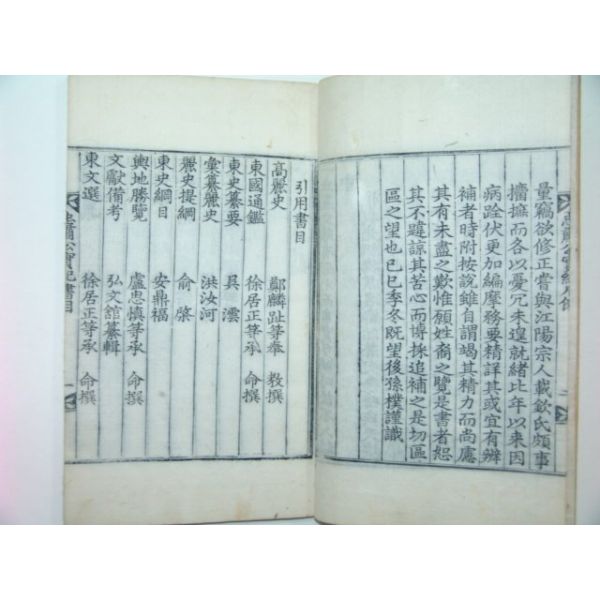 量窩欲修正嘗與江陽宗人載欽氏頗事
擩摭而各以憂冗未遑就緖比年以來因
病詮伏更加編摩務要精詳其或宜有辨
補者時附按說雖自謂竭其精力而尚慮
其有未盡之歎惟願姓裔之覽是書者恕
其不韙諒其苦心而博採追補之是切區
區之望也己巳季冬旣望後孫樸謹識
引用書目
高麗史 鄭麟趾等奉 敎撰
東國通鑑 徐居正等承 命撰
東史纂要 吳澐
彙纂麗史 洪汝河
麗史提綱 兪棨
東史綱目 安鼎福
輿地勝覽 盧思愼等承 命撰
文獻備考 弘文舘纂輯
東文選 徐居正等承 命撰
書目 一